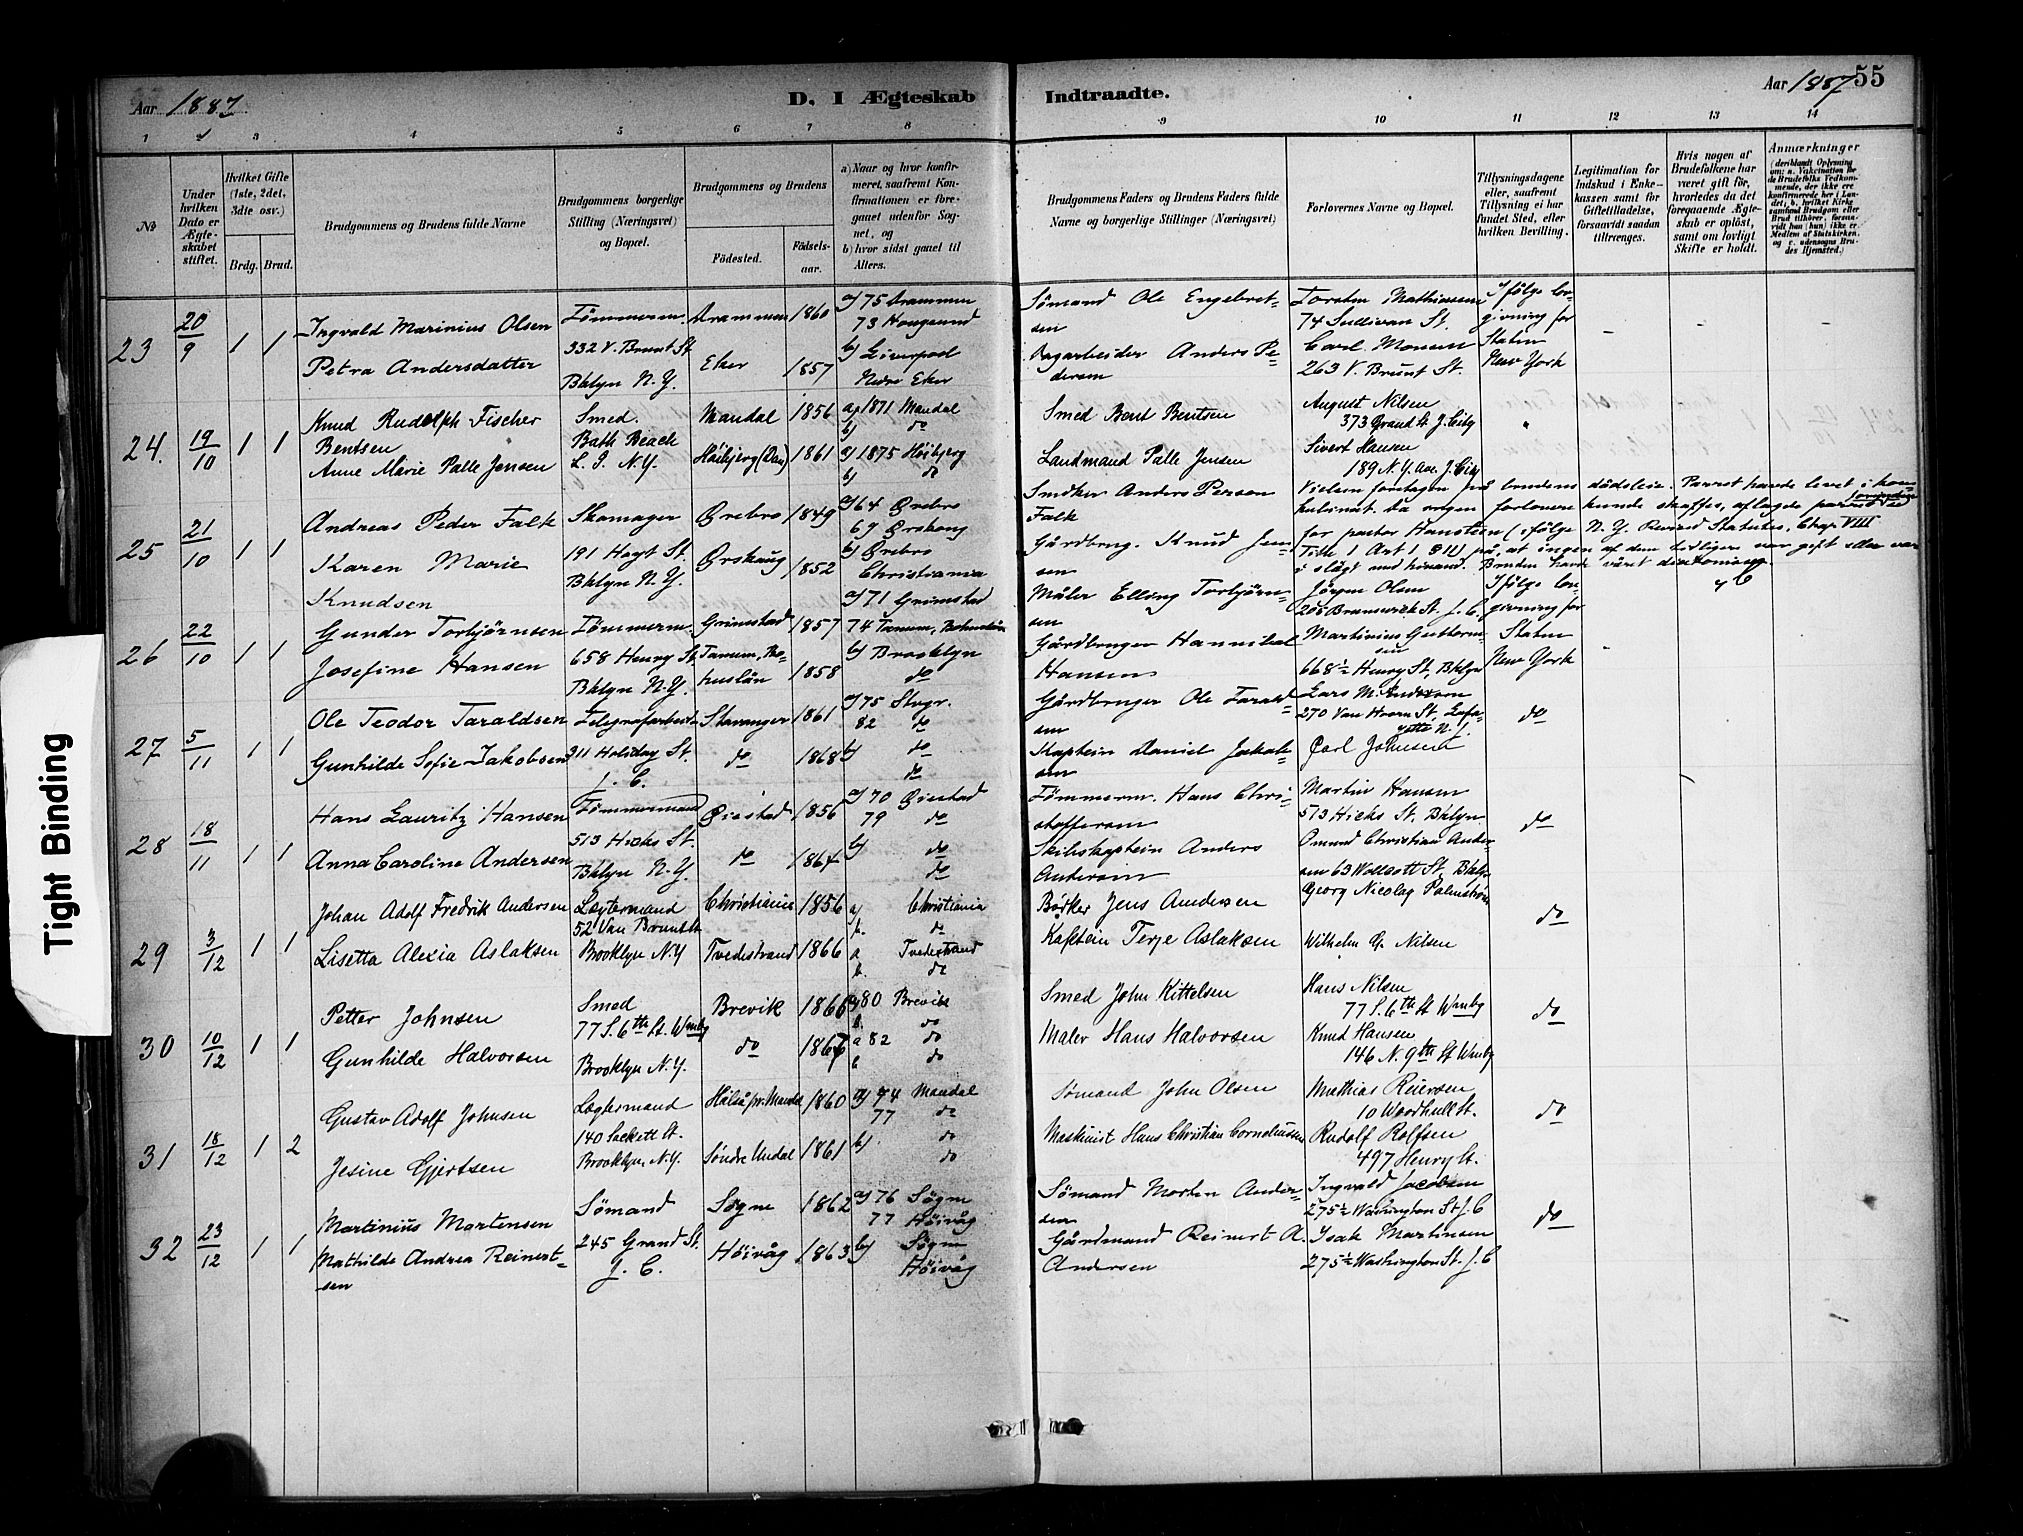 Aar 1887.
D. I Ægteskab Indtraadte.
Aar 1887
55
1 2 3 4 5 6 7 8 9 10 11 12 13 14
№
Under hvilken Dato er Ægteskabet stiftet.
Hvilket Gifte (1ste, 2det, 3die osv.)
Brdg. Brud.
Brudgommens og Brudens fulde Navne
Brudgommens borgerlige Stilling (Næringsvei) og Bopæl.
Brudgommens og Brudens
Födested.
Födselsaar.
a) Naar og hvor konfirmeret, saafremt Konfirmationen er foregaaet udenfor Sognet, og
b) hvor sidst gaaet til Alters.
Brudgommens Faders og Brudens Faders fulde Navne og borgerlige Stillinger (Næringsvei)
Forlovernes Navne og Bopæl.
Tillysningsdagene eller, saafremt Tillysning ei har fundet Sted, efter hvilken Bevilling.
Legitimation for Indskud i Enkekassen samt for Giftetilladelse, forsaavidt saadan tiltrænges.
Hvis nogen af Brudefolkene har været gift för, hvorledes da det foregaaende Ægteskab er oplöst, samt om lovligt Skifte er holdt.
Anmærkninger
23 20/9 1 1
Ingvald Marinius Olsen
Petra Andersdatter
Tömmerm.
332 V. Brunt St
Bklyn N.Y.
Drammen 1860
Eker 1857
a) 75 Drammen
73 Hougsund
b) Liverpool
Nedre Eker
Sömand Ole Engebretsen
Dagarbeider Anders Pedersen
Torsten Mathiasen
74 Sullivan St.
Carl Monsen
263 V. Brunt St.
Ifölge lovgivning for Staten New York
24. 19/10 1 1
Knud Rudolph Fischer
Bentsen
Anne Marie Palle Jensen
Smed.
Bath Beach
L. I. N.Y.
Mandal 1856
Höibjerg (Dan) 1861
a) 1871 Mandal
b) do
a) 1875 Höibjerg
b) do
Smed Bent Bentsen
Landmand Palle Jensen
August Nilsen
373 Grand St J. City
Sivert Hansen
189 N.Y. Ave. J. City
"
25 21/10 1 1
Andreas Peder Falk
Karen Marie
Knudsen
Skomager
191 Hoyt St.
Bklyn N.Y.
Örebro 1849
Ørskoug 1852
a) 64 Örebro
67 Ørskoug
b) Örebro
Christiania
Anders Person
Falk
Gårdbrug. Knud Jensen
Vielsen foretagen på brudens dödsleie. Parret havde levet i
da ingen forlovere kunde skaffes, aflagde parret ed
for pastor Hansteen (ifölge N.Y. Revised Statutes, Chap. VIII
Title 1 Art 1 § 11) på, at ingen af dem tidligere var gift eller var
i slägt med hinanden. Bruden havde väret
26 22/10 1 1
Gunder Torbjörnsen
Josefine Hansen
Tömmerm.
658 Henry St.
Bklyn N.Y.
Grimstad 1857
Tanum, Bohuslän 1858
a) 71 Grimstad
74 Tanum, Bohuslän
b) Brooklyn
do
Måler Elling Torbjörnsen
Gårdbruger Hannibal
Hansen
Jörgen Olsen
205 Brunswick St. J. C.
Martinius Guttormsen
668½ Henry St, Bklyn
Ifölge lovgivning for Staten New York
27 5/11 1 1
Ole Teodor Taraldsen
Gunhilde Sofie Jakobsen
Telegrafarbeid.
311 Holiday St.
J. C.
Stavanger 1861
do 1868
a) 75 Stvgr.
82 do
b) do
do
Gårdbruger Ole Taraldsen
Kaptein Daniel Jakobsen
Lars M. Andersen
270 Van Horn St, Lafayette N.J.
Carl Johnsen
do
28 18/11 1 1
Hans Lauritz Hansen
Anna Caroline Andersen
Tömmermand
513 Hicks St.
Bklyn N.Y.
Öiestad 1856
do 1864
a) 70 Öiestad
79 do
b) do
do
Tömmerm. Hans Christoffersen
Skibskaptein Anders
Andersen
Martin Hansen
513 Hicks St, Bklyn
Omund Christian Andersen 63 Wolcott St, Bklyn
do
29 3/12 1 1
Johan Adolf Fredrik Andersen
Lisetta Alexia Aslaksen
Lægtermand
52 Van Brunt St
Brooklyn N.Y
Christiania 1856
Tvedestrand 1866
a) Christiania
b. do
a Tvedestrand
b. do
Bödker Jens Andersen
Kaptein Terje Aslaksen
Georg Nicolay Palmström
Wilhelm G. Nilsen
do
30 10/12 1 1
Petter Johnsen
Gunhilde Halvorsen
Smed
77 S. 6th St. Wmbg
Brooklyn N.Y.
Brevik 1866
do 1867
a) 80 Brevik
b. do
a 82 do
b do
Smed John Kittelsen
Maler Hans Halvorsen
Hans Nilsen
77 S. 6th St Wmbg
Knud Hansen
146 N. 9th St Wmbg
do
31 18/12 1 2
Gustav Adolf Johnsen
Jesine Gjertsen
Lægtermand
140 Sackett St.
Brooklyn N.Y.
Halså pr. Mandal 1860
Söndre Undal 1861
a) 74 Mandal
77 do
b) do
do
Sømand John Olsen
Maskinist Hans Christian Corneliussen
Mathias Reiersen
10 Woodhull St.
Rudolf Rolfsen
497 Henry St.
do
32 23/12 1 1
Martinius Mortensen
Mathilde Andrea Reinertsen
Sömand
245 Grand St.
J. C.
Sögne 1862
Höivåg 1863
a) 76 Sögne
77 Höivåg
b) Sögne
Höivåg
Sömand Morten Andersen
Gårdmand Reinert A.
Andersen
Ingvald Jacobsen
275½ Washington St J. C
Isak Martinsen
275½ Washington St. J. C
do
Tight Binding